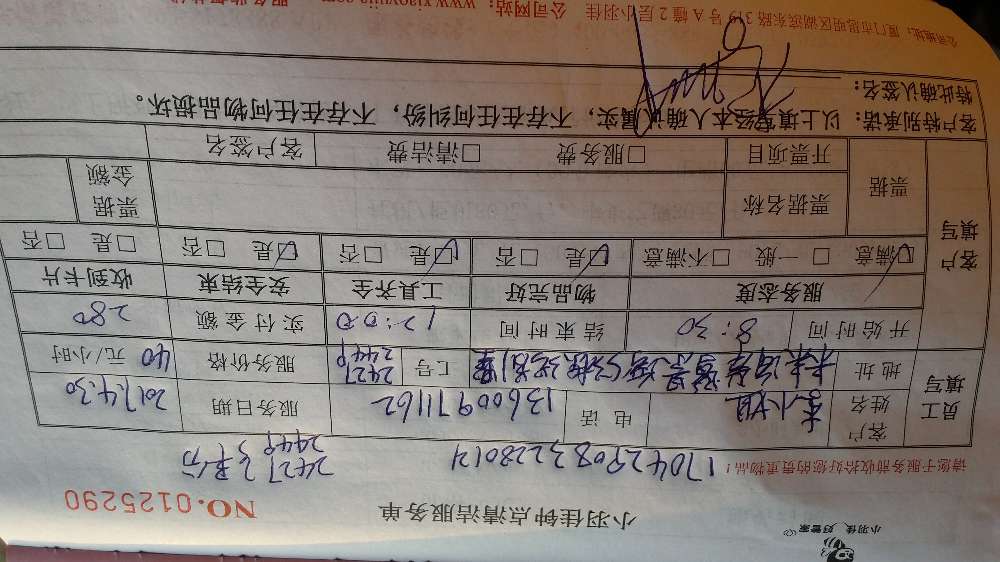 小羽佳 好管家
小羽佳钟点清洁服务单
NO.0125290
请您于服务前收拾好您的贵重物品!
17042908322801
2427
2449
员工填写
客户姓名 李小姐 电话 13600971162 服务日期 2017.4.30
地址 工号 2427 2449 服务价格 40 元/小时
开始时间 8:30 结束时间 12:00 实付金额 280
客户填写
服务态度 物品完好 工具齐全 安全结束 收到卡片
☑满意 □一般 □不满意 ☑是 □否 ☑是 □否 ☑是 □否 □是 □否
票据 票据名称 票据金额
开票项目 □服务费 □清洁费 客户签名
客户特别承诺:以上填写经本人确认属实,不存在任何纠纷,不存在任何物品损坏。
特此确认签名:
公司地址:厦门市思明区湖滨东路319号A幢2层小羽佳 公司网站:www.xiaoyujia.com